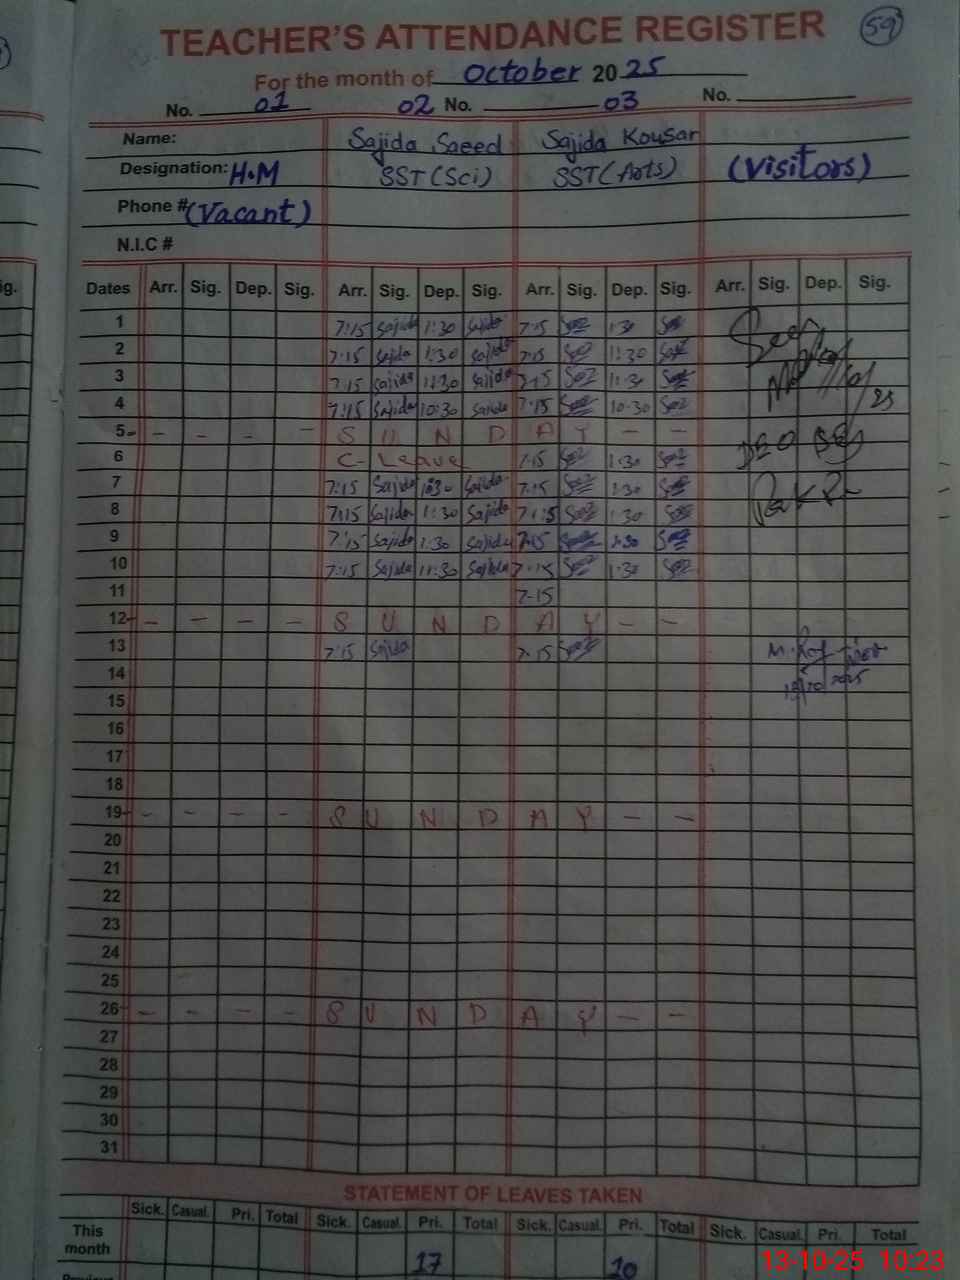 59
TEACHER'S ATTENDANCE REGISTER
For the month of October 2025
No. 01 02 No. 03 No.
Name: Sajida Saeed Sajida Kousar
Designation: H.M SST (Sci) SST (Arts) (Visitors)
Phone # (Vacant)
N.I.C #
ig. Dates Arr. Sig. Dep. Sig. Arr. Sig. Dep. Sig. Arr. Sig. Dep. Sig. Arr. Sig. Dep. Sig.
1 7:15 Sajida 1:30 Sajida 7:15 1:30
2 7:15 Sajida 1:30 Sajida 7:15 11:30
3 7:15 Sajida 11:30 Sajida 7:15 11:30
4 7:15 Sajida 10:30 Sajida 7:15 10:30
5 - - - - - S U N D A Y - -
6 C- Leave 7:15 1:30
7 7:15 Sajida 1:30 Sajida 7:15 1:30
8 7:15 Sajida 1:30 Sajida 7:15 1:30
9 7:15 Sajida 1:30 Sajida 7:15 1:30
10 7:15 Sajida 11:30 Sajida 7:15 1:30
11 7-15
12 - - - - - S U N D A Y - -
13 7:15 Sajida 7:15
14 13/10/2025
15
16
17
18
19 - - - - - S U N D A Y - -
20
21
22
23
24
25
26 - - - - - S U N D A Y - -
27
28
29
30
31
STATEMENT OF LEAVES TAKEN
Sick. Casual. Pri. Total Sick. Casual. Pri. Total Sick. Casual. Pri. Total Sick. Casual. Pri. Total
This month 17 10
13-10-25 10:23